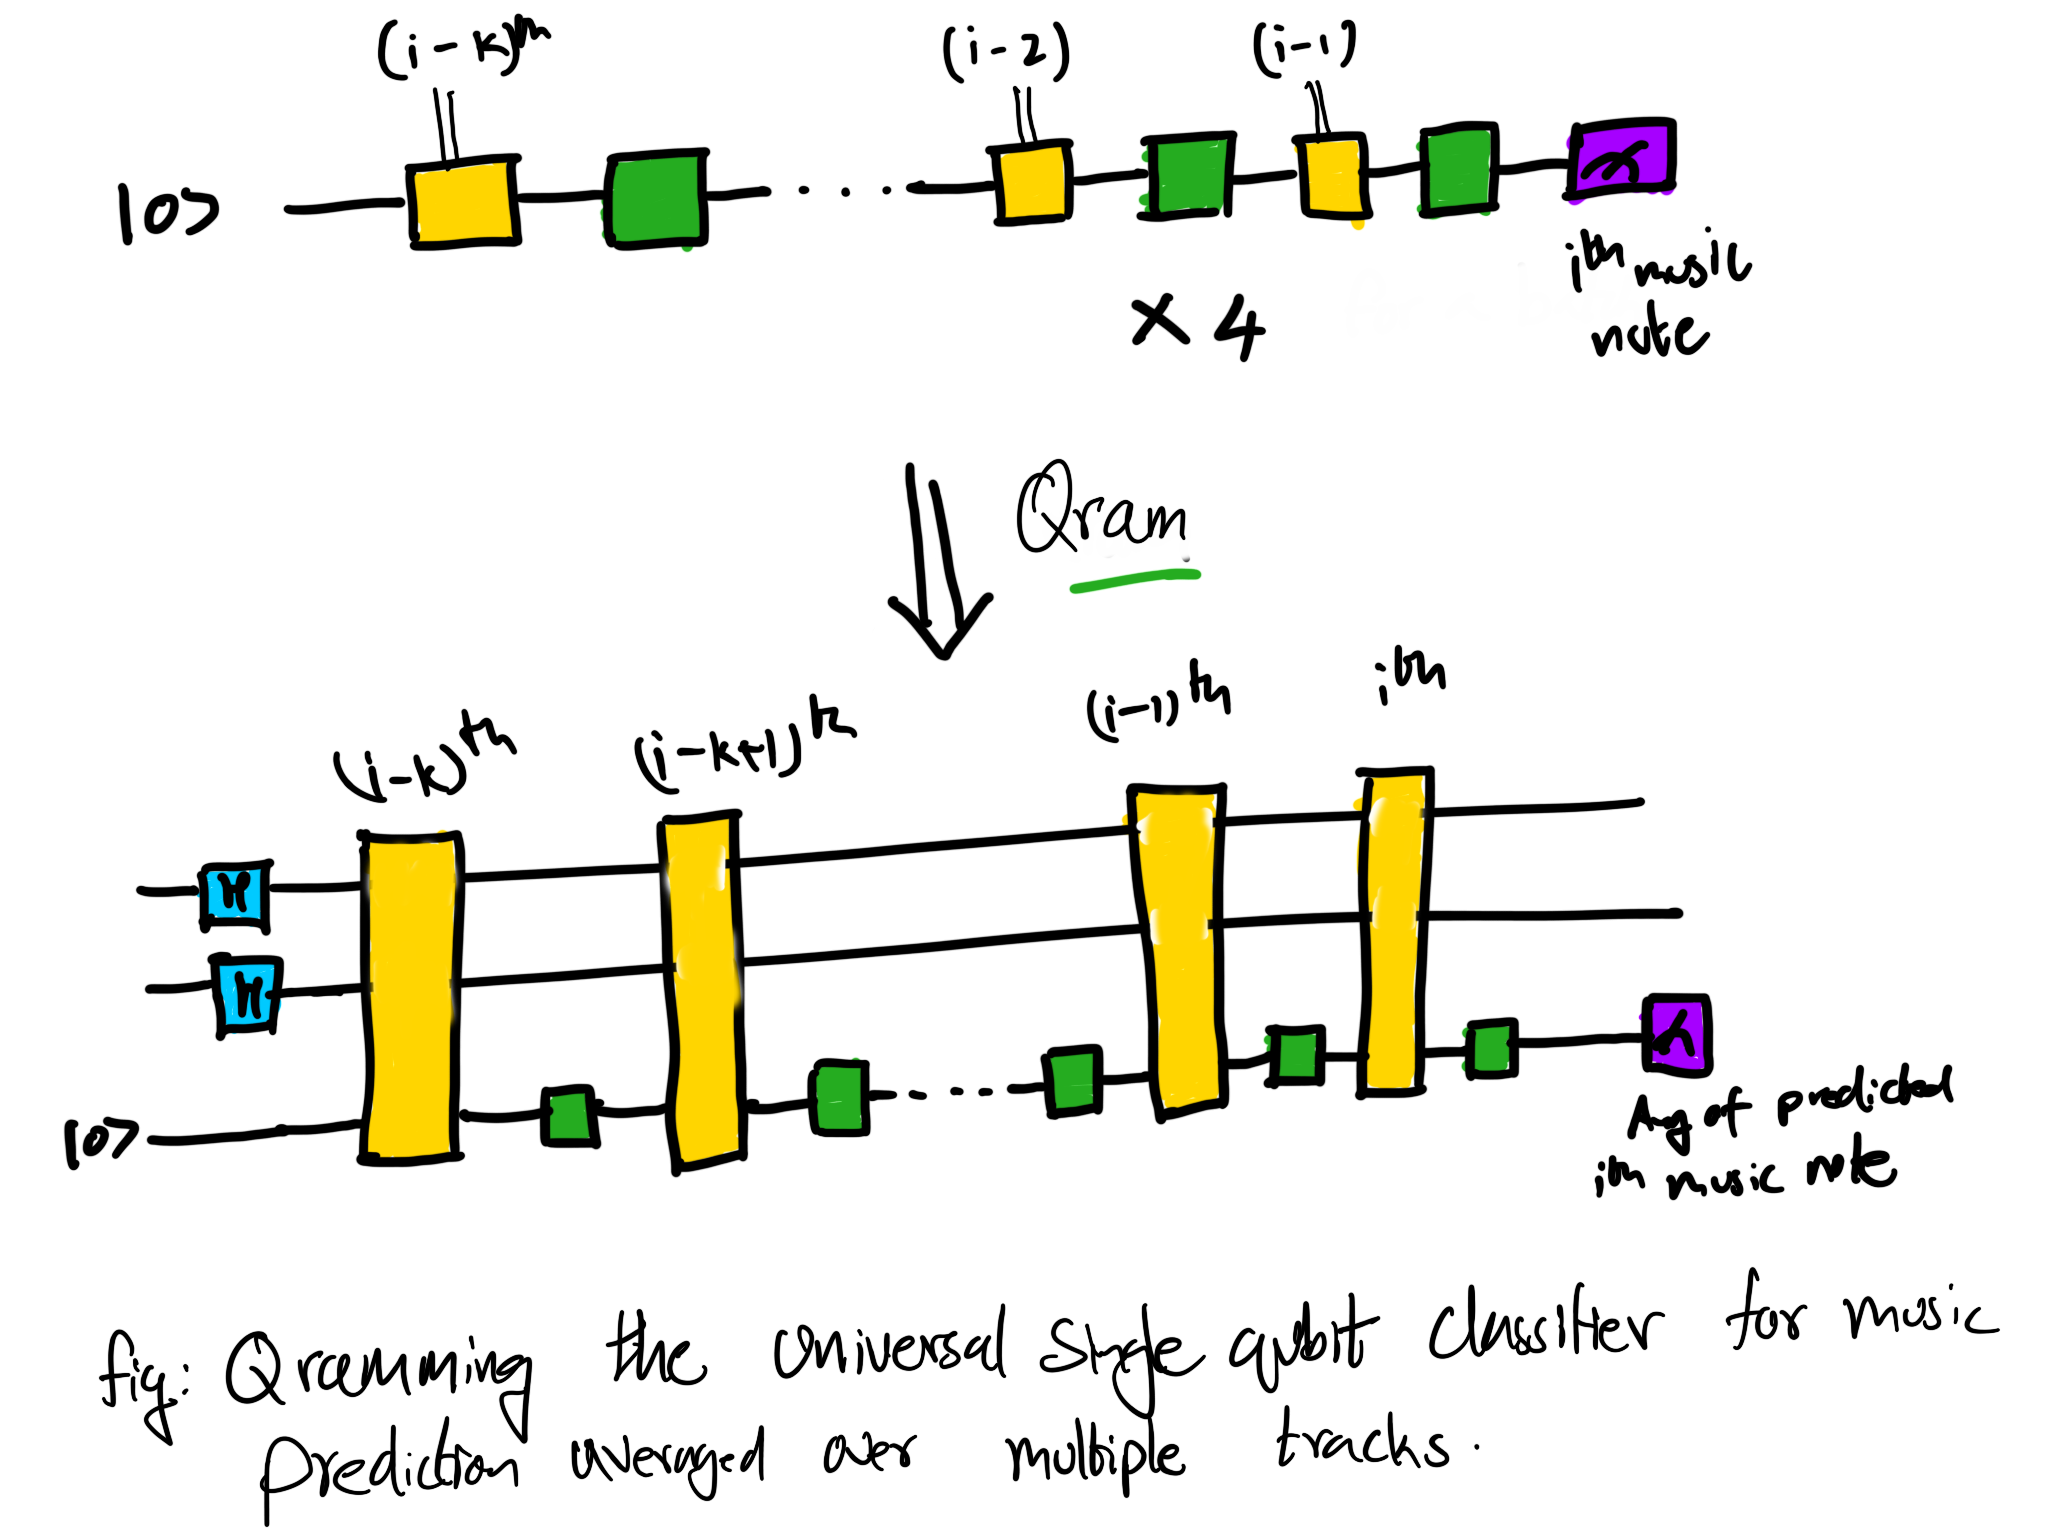 (i-k)th
(i-2)
(i-1)
|0>
ith music
note
× 4
Qram
(i-k)th
(i-k+1)th
(i-1)th
ith
H
H
|0>
Avg of predicted
ith music note
fig: Qramming the Universal Single qubit classifier for music
prediction averaged over multiple tracks.